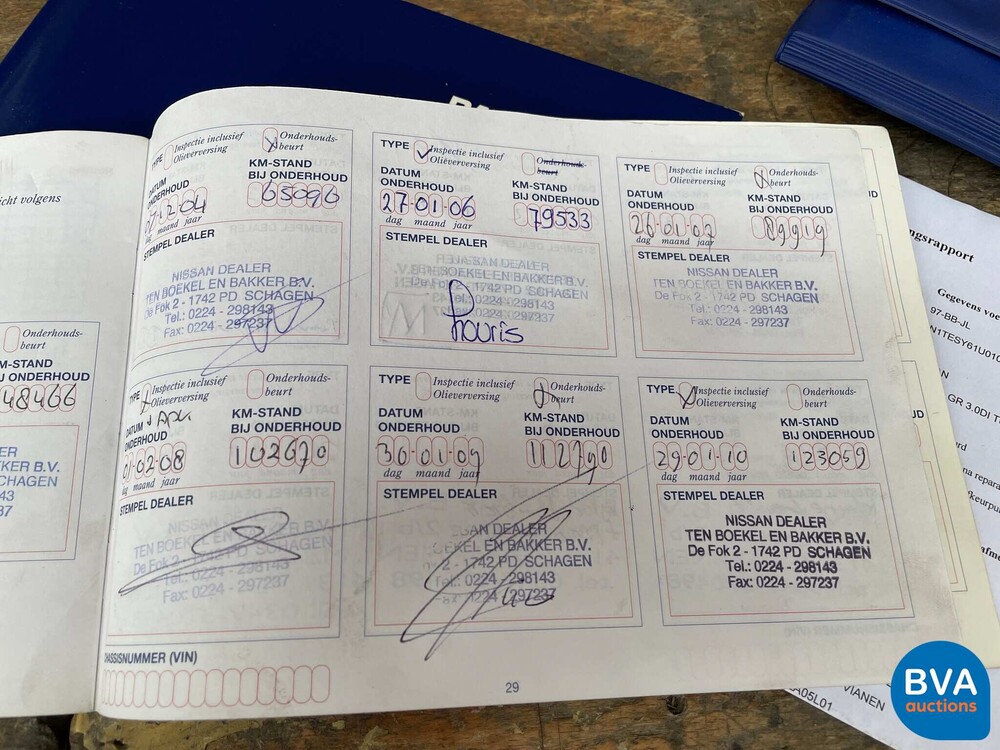 TYPE Inspectie inclusief Olieverversing
Onderhouds-beurt
DATUM ONDERHOUD
12 04
dag maand jaar
KM-STAND BIJ ONDERHOUD
65096
STEMPEL DEALER
NISSAN DEALER
TEN BOEKEL EN BAKKER B.V.
De Fok 2 - 1742 PD SCHAGEN
Tel.: 0224 - 298143
Fax: 0224 - 297237
TYPE Inspectie inclusief Olieverversing
Onderhouds-beurt
DATUM ONDERHOUD
27 01 06
dag maand jaar
KM-STAND BIJ ONDERHOUD
79533
STEMPEL DEALER
NISSAN DEALER
TEN BOEKEL EN BAKKER B.V.
De Fok 2 - 1742 PD SCHAGEN
Tel.: 0224 - 298143
297237
TYPE Inspectie inclusief Olieverversing
Onderhouds-beurt
DATUM ONDERHOUD
26 01 07
dag maand jaar
KM-STAND BIJ ONDERHOUD
89919
STEMPEL DEALER
NISSAN DEALER
TEN BOEKEL EN BAKKER B.V.
De Fok 2 - 1742 PD SCHAGEN
Tel.: 0224 - 298143
Fax: 0224 - 297237
TYPE Inspectie inclusief Olieverversing
Onderhouds-beurt
DATUM ONDERHOUD
01 02 08
dag maand jaar
KM-STAND BIJ ONDERHOUD
102670
STEMPEL DEALER
NISSAN DEALER
TEN BOEKEL EN BAKKER B.V.
De Fok 2 - 1742 PD SCHAGEN
Tel.: 0224 - 298143
Fax: 0224 - 297237
TYPE Inspectie inclusief Olieverversing
Onderhouds-beurt
DATUM ONDERHOUD
30 01 09
dag maand jaar
KM-STAND BIJ ONDERHOUD
112790
STEMPEL DEALER
SSAN DEALER
OEKEL EN BAKKER B.V.
De Fok 2 - 1742 PD SCHAGEN
Tel.: 0224 - 298143
297237
TYPE Inspectie inclusief Olieverversing
Onderhouds-beurt
DATUM ONDERHOUD
29 01 10
dag maand jaar
KM-STAND BIJ ONDERHOUD
123059
STEMPEL DEALER
NISSAN DEALER
TEN BOEKEL EN BAKKER B.V.
De Fok 2 - 1742 PD SCHAGEN
Tel.: 0224 - 298143
Fax: 0224 - 297237
CHASSISNUMMER (VIN)
29
icht volgens
Onderhouds-beurt
KM-STAND
J ONDERHOUD
48466
ER
KKER B.V.
SCHAGEN
43
37
ngsrapport
Gegevens voe
97-BB-JL
N1TESY61U010
GR 3.0DI T
na repara
keurpu
afme
VIANEN
A05L01
BVA
auctions